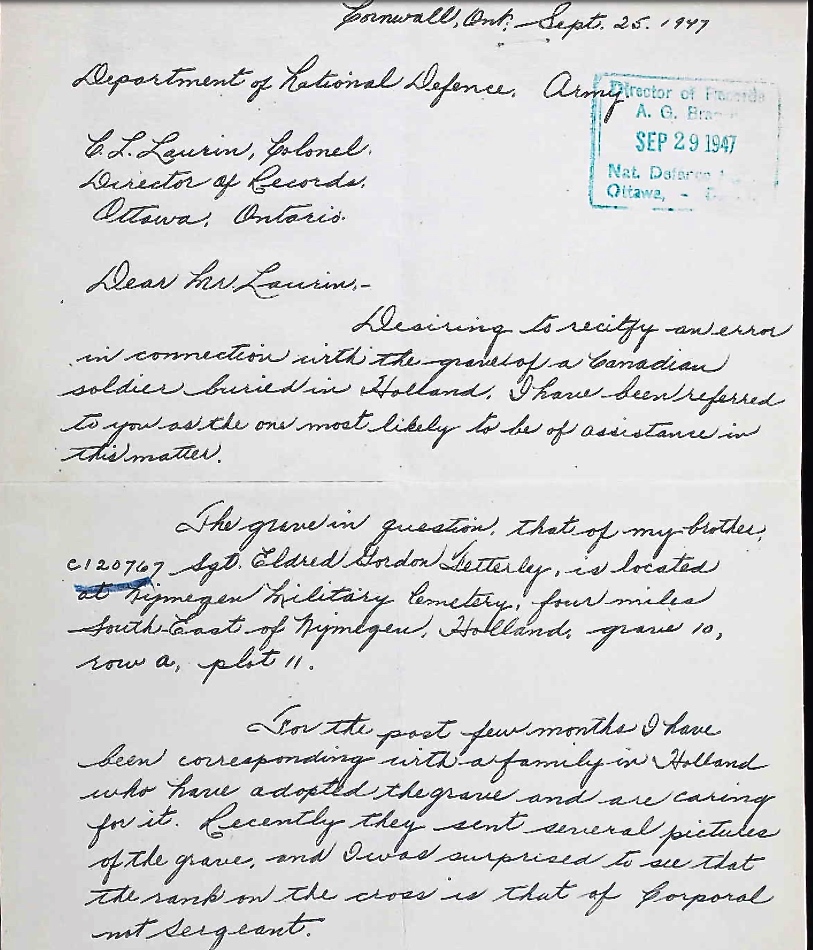 Cornwall, Ont; Sept. 25. 1947
Department of National Defence, Army
Director of Records
A. G. Bra
SEP 29 1947
Nat. Defence
Ottawa, -
C. L. Laurin, Colonel.
Director of Records.
Ottawa, Ontario.
Dear Mr. Laurin,-
Desiring to recitfy an error
in connection with the grave of a Canadian
soldier buried in Holland, I have been referred
to you as the one most likely to be of assistance in
this matter.
The grave in question, that of my brother,
C120767 Sgt. Eldred Gordon Fetterly, is located
at Nijmegen Military Cemetery, four miles
South-East of Nijmegen, Holland, grave 10,
row A, plot 11.
For the past few months I have
been corresponding with a family in Holland
who have adopted the grave and are caring
for it. Recently they sent several pictures
of the grave, and I was surprised to see that
the rank on the cross is that of Corporal
not Sergeant.